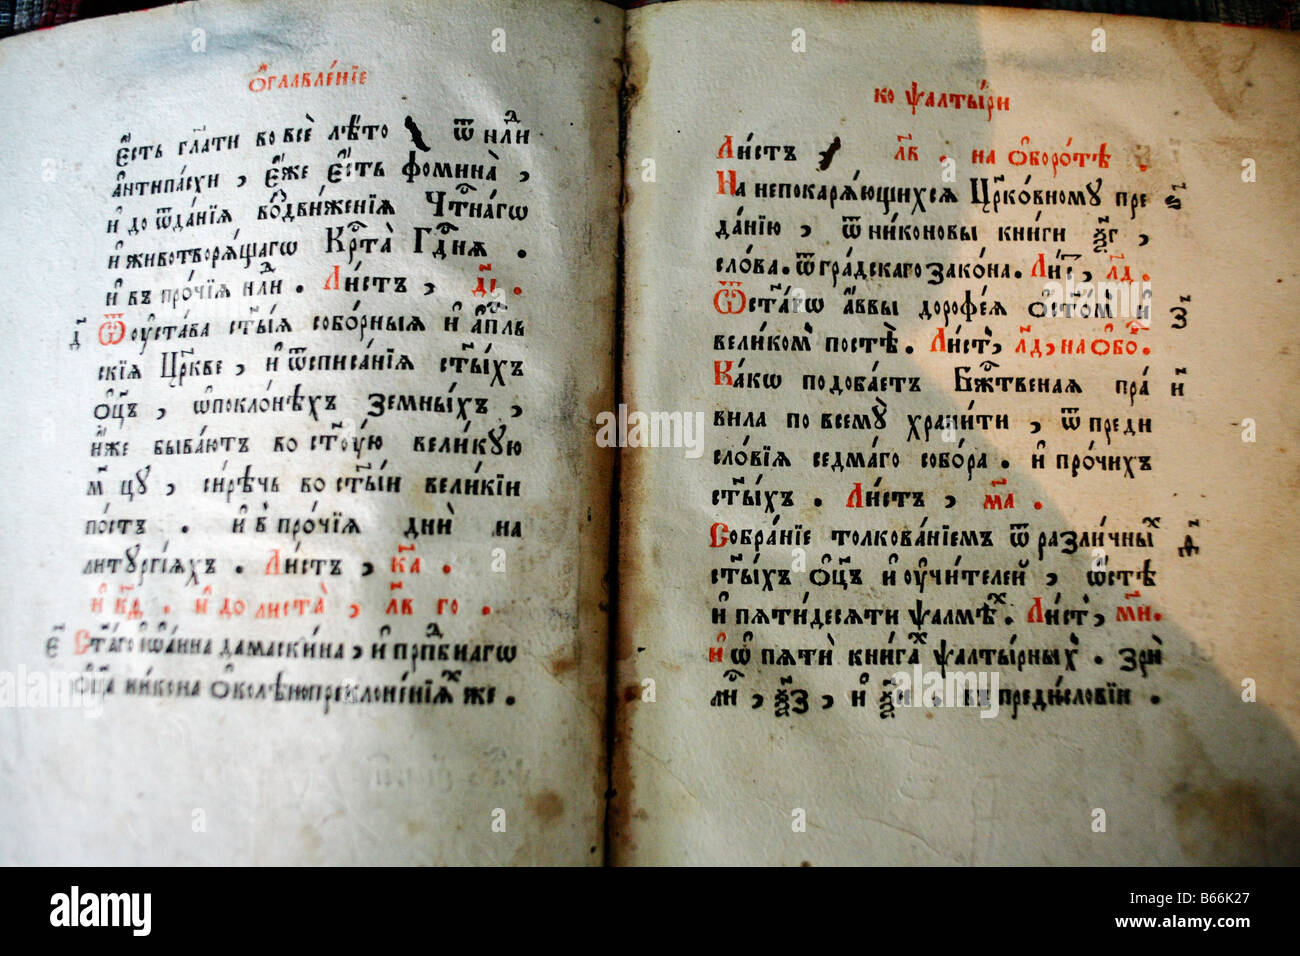 Ѻ҆главле́нїе
є҆́сть гл҃ати во всѐ лѣ́то ѿ нл҃и
а҆нтипа́схи, є҆́же є҆́сть фомина̀,
и҆ до ѿда́нїѧ воздви́женїѧ Чⷭ҇тна́гѡ
и҆ животворѧ́щагѡ Крⷭ҇та̀ Гдⷭ҇нѧ.
и҆ въ про́чїѧ нл҃и. Ли́стъ, д҃і.
д҃ Ѿ оу҆ста́ва ст҃ы́ѧ собо́рныѧ и҆ а҆пⷭ҇ль
скїѧ Цр҃кве, и҆ ѿ списа́нїѧ ст҃ы́хъ
ѻ҆ц҃ъ, ѡ҆ покло́нѣхъ земны́хъ,
и҆̀же быва́ютъ во ст҃ꙋ́ю вели́кꙋю
м҃ цꙋ, си́рѣчь во ст҃ы́й вели́кїй
по́стъ. и҆ в̾ про́чїѧ дни̑ на
литꙋргі́ѧхъ. Ли́стъ, к҃а.
и҆ к҃д. и҆ до листа̀, л҃в го.
є҃ Ст҃а́го і҆ѡа́нна дамаскина, и҆ прпⷣбнагѡ
ѻ҆ц҃а ни́кона ѻ҆ колѣнопреклоне́нїѧхъ же.
ко ѱалты́ри
Ли́стъ л҃в. на ѻ҆боро́тѣ.
На непокарѧ́ющихсѧ Цр҃ко́вномꙋ пре ѕ҃
да́нїю, ѿ ни́коновы кни́ги ѯ҃г,
сло́ва. ѿ гра́дскаго зако́на. Лиⷭ҇, л҃д.
Ѿ ста́рѡ а҆́ввы дорофе́ѧ ѻ҆ ст҃о́мъ и҆ з҃
вели́комъ по́стѣ. Ли́стъ, л҃д, на ѻ҆бо.
Ка́кѡ подоба́етъ Бж҃твеная пра и҃
вила по всемꙋ̀ храни́ти, ѿ преди
сло́вїѧ седма́го собо́ра. и҆ про́чихъ
ст҃ы́хъ. Ли́стъ, м҃а.
Собра́нїе толкова́нїемъ ѿ разли́чныⷯ
ст҃ы́хъ ѻ҆ц҃ъ и҆ оу҆чи́телей, ѡ҆ стѣ
и҆ пѧти́десѧти ѱалмѣⷯ. Ли́стъ, м҃и.
И҆ ѡ҆ пѧти̑ кни́гаⷯ ѱалты́рныⷯ. зри̑
ли҃, ѯ҃з, и҆ ѯ҃и. в̾ предисло́вїи.
alamy
B66K27
www.alamy.com